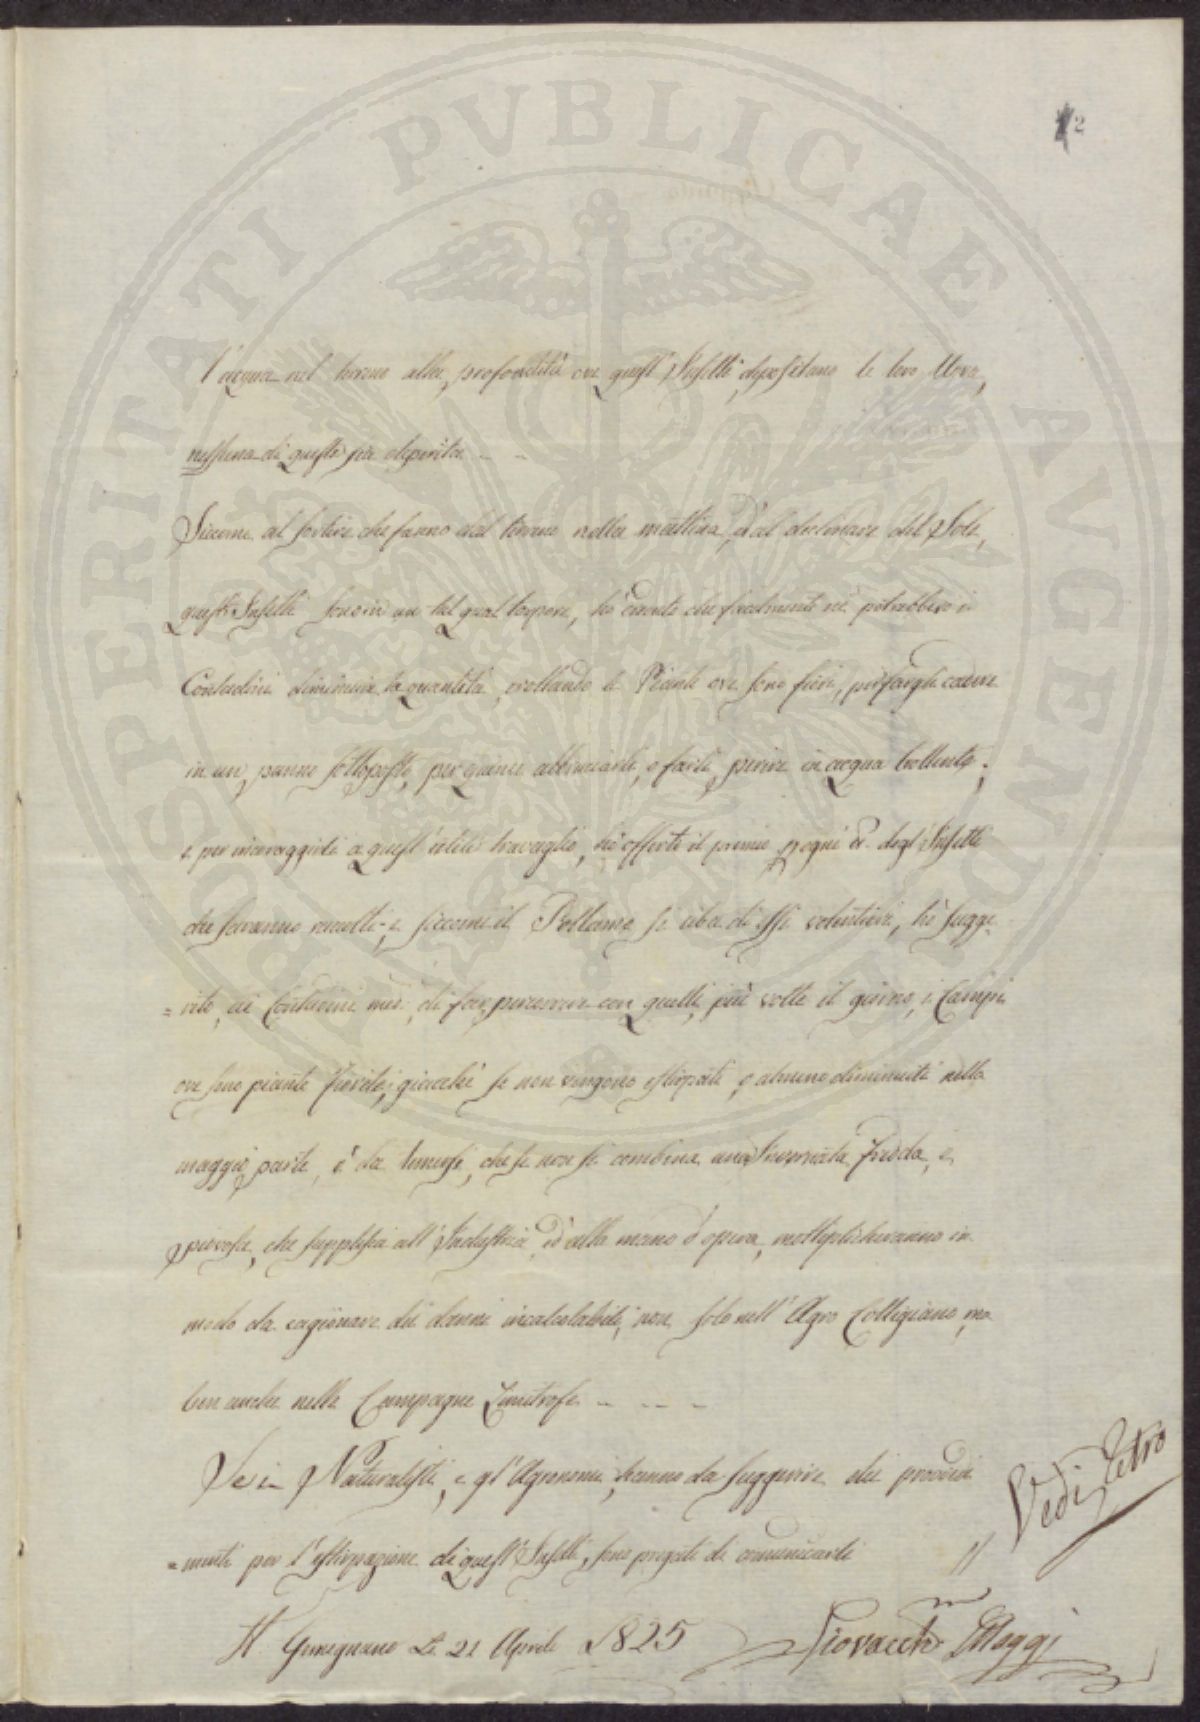 2
l'acqua nel terreno alla profondità ove quest' Insetti depositano le loro Uova,
nessuna di queste sia deperita - -
Siccome al sortire che fanno dal terreno nella mattina, e al declinare del Sole,
questi Insetti sono in un tal qual torpore, hò creduto che facilmente ne potrebbero i
Contadini diminuire la quantità, crollando le Piante ove sono fiori, per fargli cadere
in un panno sottoposto, per quindi abbruciarli, o farli perire in acqua bollente;
e per incoraggirli a quest'utile travaglio, hò offerto il premio p ogni degl'Insetti
che saranno raccolti; e siccome il Pollame si ciba di essi volentieri, hò sugge-
=rito, ai Contadini miei, di far percorrere con quelli, più volte il giorno, i Campi
ove sono piante fiorite; giacchè se non vengono estirpati, o almeno diminuiti nella
maggior parte, è da temersi, che se non si combina una Invernata fredda, e
piovosa, che supplisca all'Industria, ed alla mano d'opera, moltiplicheranno in
modo da cagionare dei danni incalcolabili, non solo nell'Agro Colligiano, ma
ben anche nelle Campagne Limitrofe - - - -
Se i Naturalisti, e gl'Agronomi, hanno da suggerire dei provvedi
=menti per l'estirpazione di quest'Insetti, sono pregati di comunicarli //
Vedi retro
S. Gimignano Li 21 Aprile 1825
Giovacchno Maggi
PROSPERITATI PUBLICAE AUGENDAE